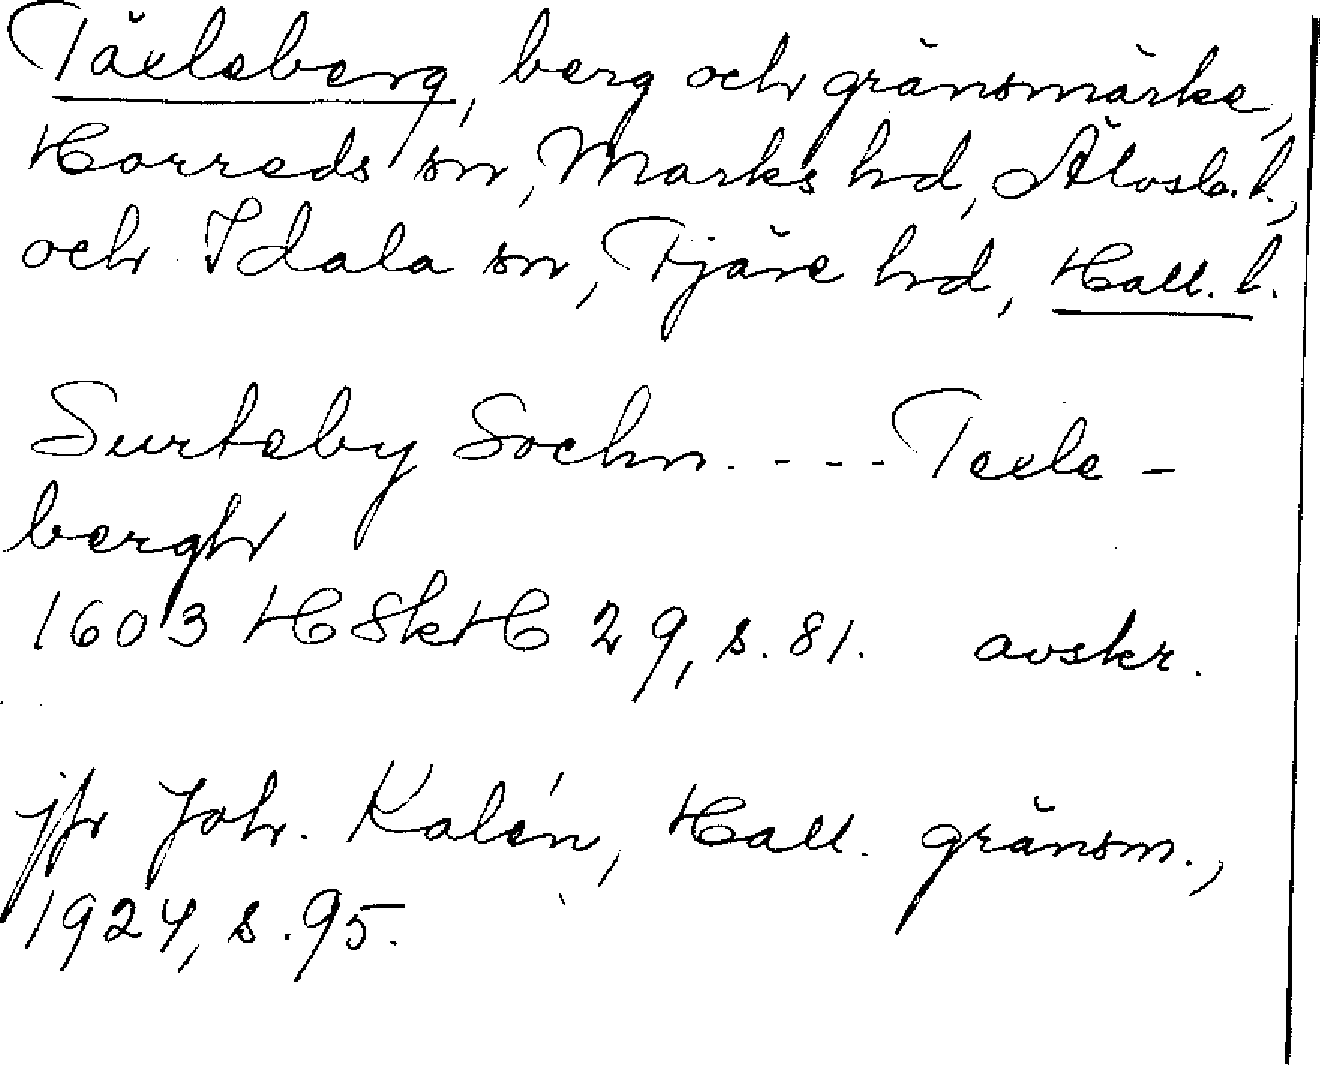 Täxleberg, berg och gränsmärke,
Horreds sn, Marks hd, Älvsb. l.,
och Idala sn, Fjäre hd, Hall. l.
Surteby Sochn. - - - Texle-
bergh
1603 HSkH 29, s. 81. avskr.
jfr Joh. Kalén, Hall. gränsm.,
1924, s. 95.